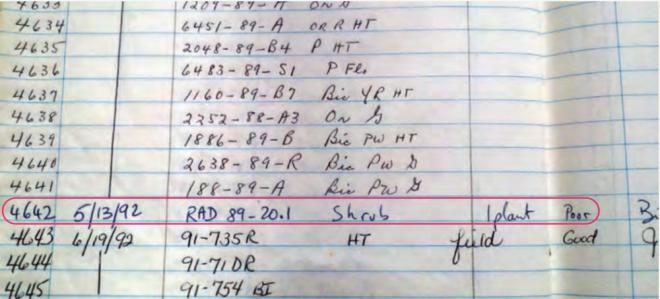 4633 1209-89-A On
4634 6451-89-A OR R HT
4635 2048-89-B4 P HT
4636 6483-89-S1 P Fls
4637 1160-89-B7 Bic YR HT
4638 2352-88-A3 On G
4639 1886-89-B Bic PW HT
4640 2638-89-R Bic PW G
4641 188-89-A Bic PW G
4642 5/13/92 RAD 89-20.1 Shrub 1 plant Poor
4643 6/19/92 91-735R HT field Good
4644 91-71DR
4645 91-754 BI